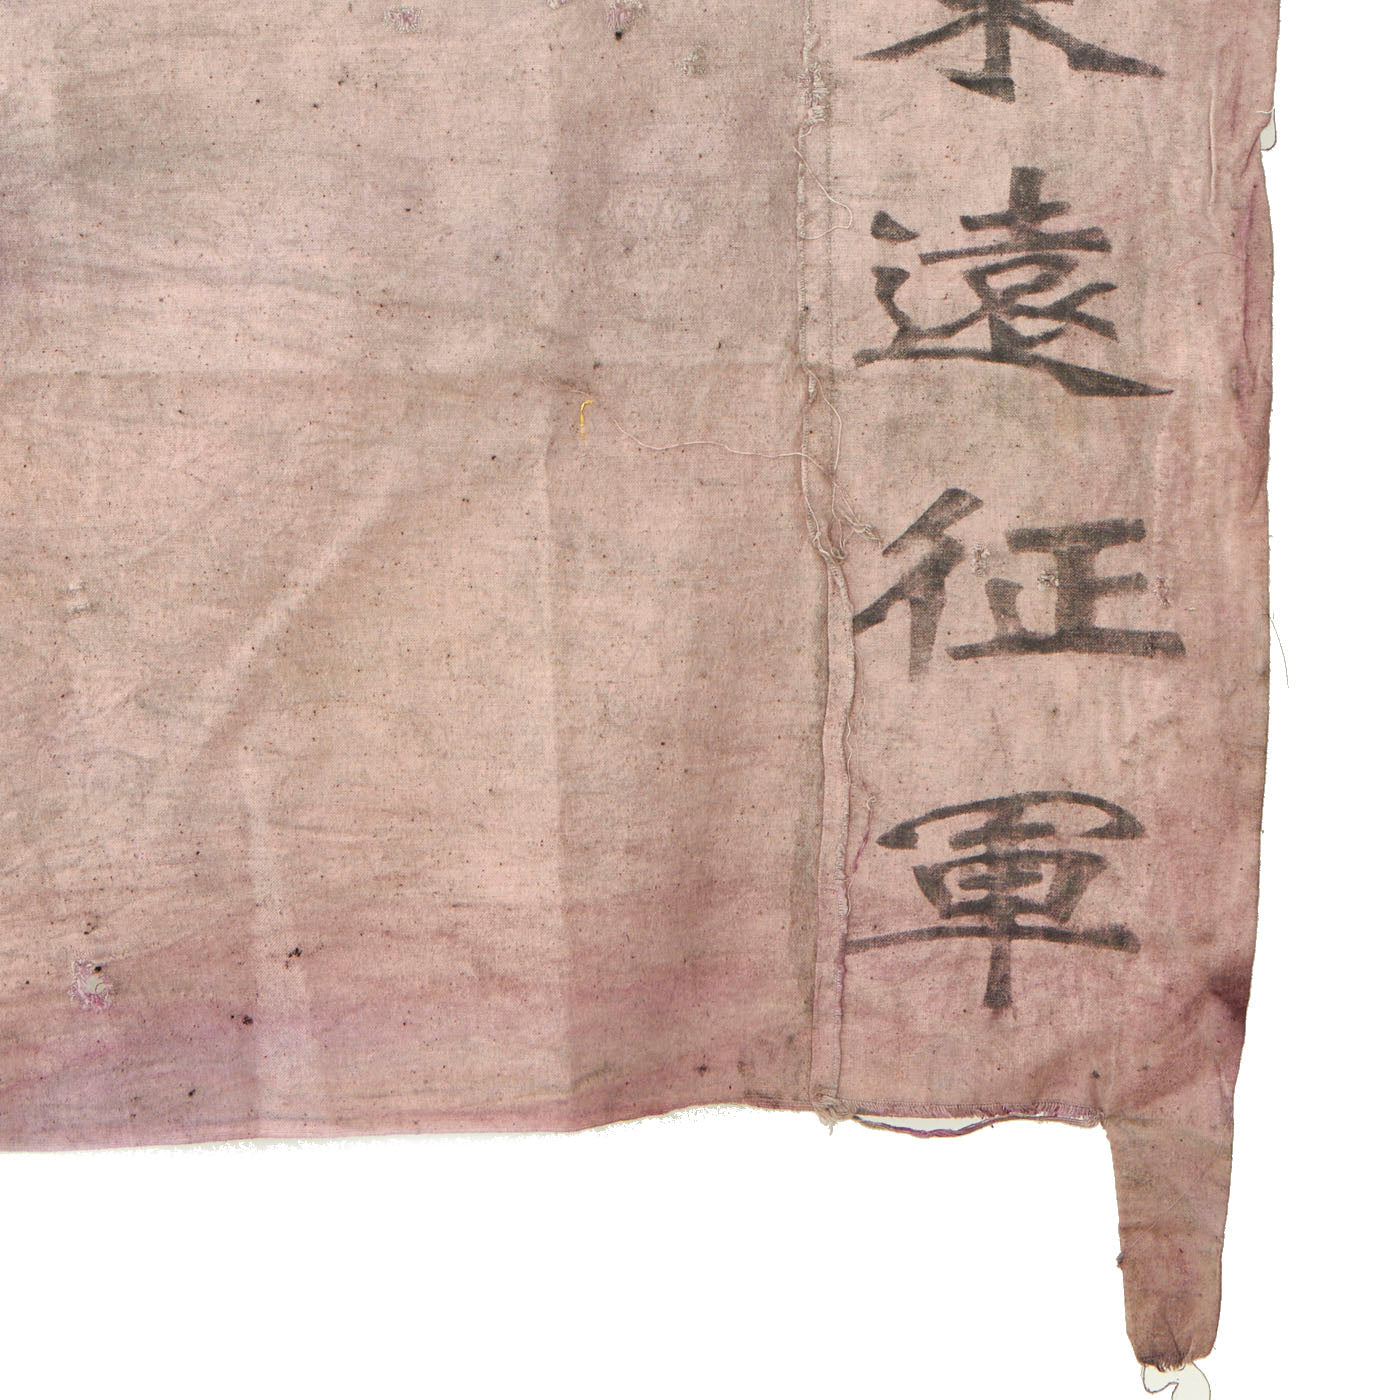 遠
征
軍